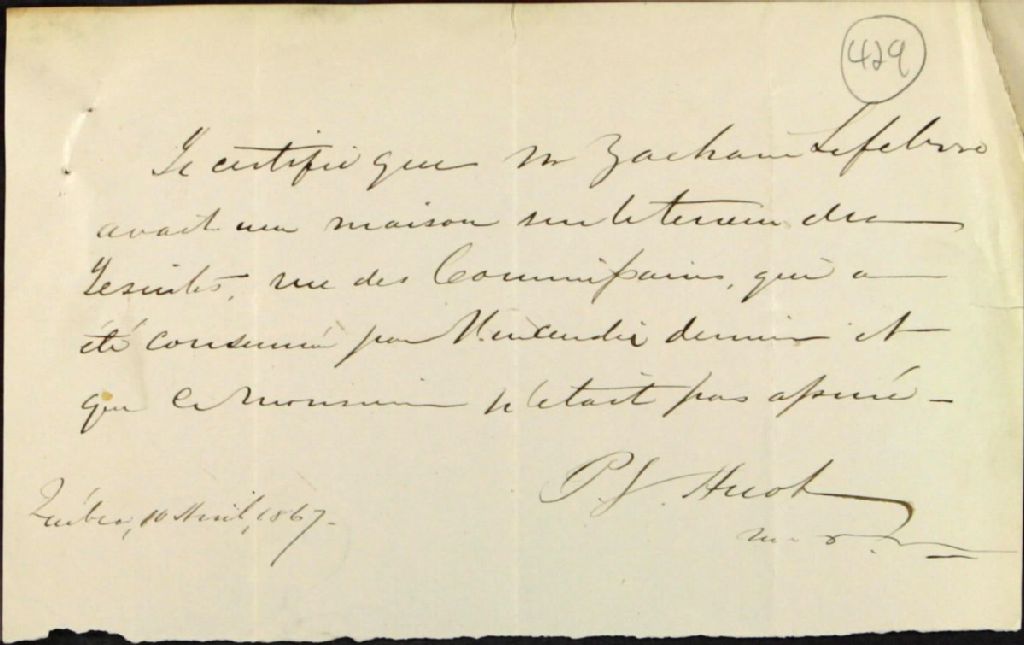 429
Je certifie que Mr Zacharie Lefebvre
avait une maison sur le terrain des
Jesuites, rue des Commissaires, qui a
été consumé par l'incendie dernier et
que ce Monsieur n'était pas assuré -
P. G. Huot
Québec, 10 Avril, 1867.